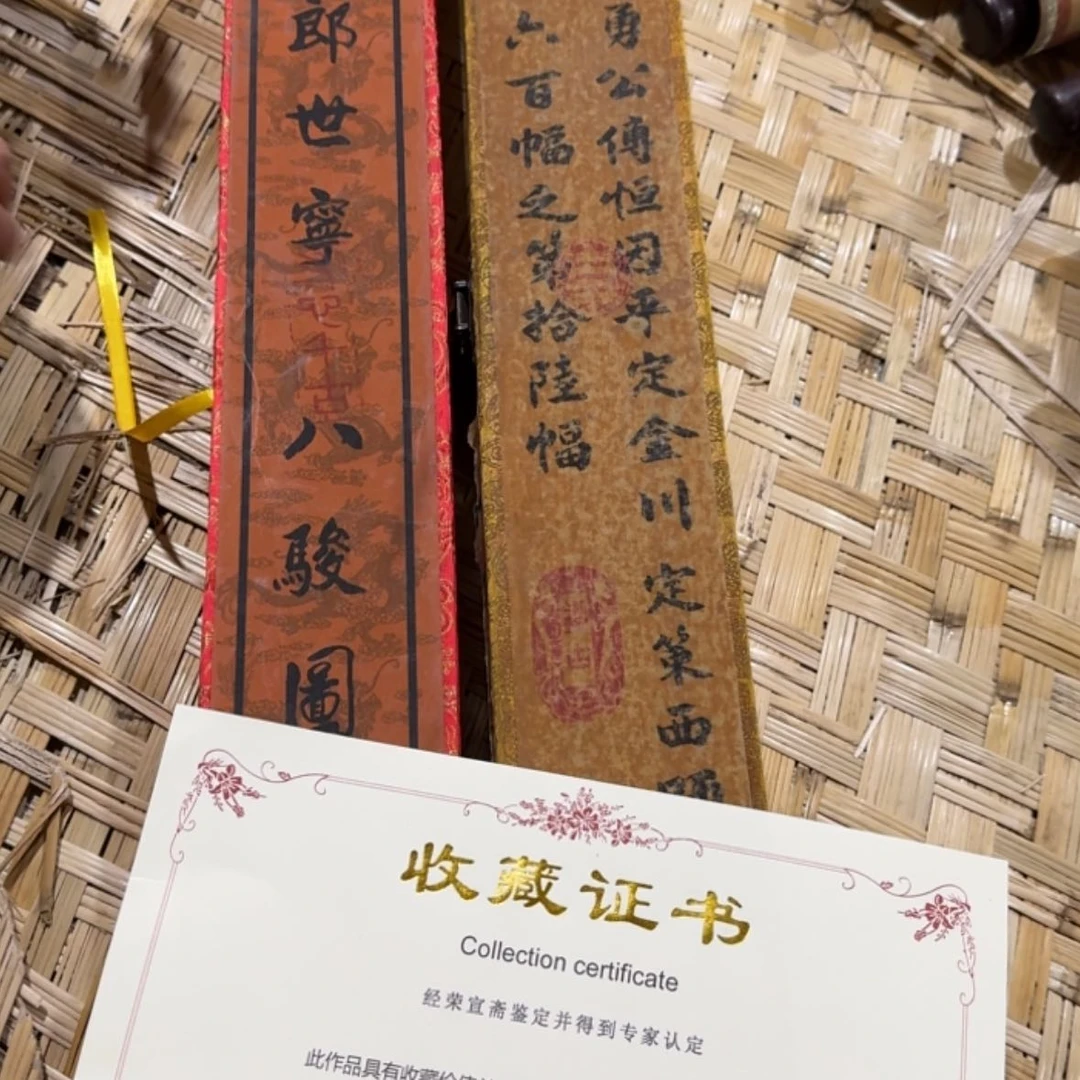 郎世寧八駿圖
勇公傅恒因平定金川定策西
六百幅之第拾陸幅
收藏证书
Collection certificate
经荣宣斋鉴定并得到专家认定
此作品具有收藏价值